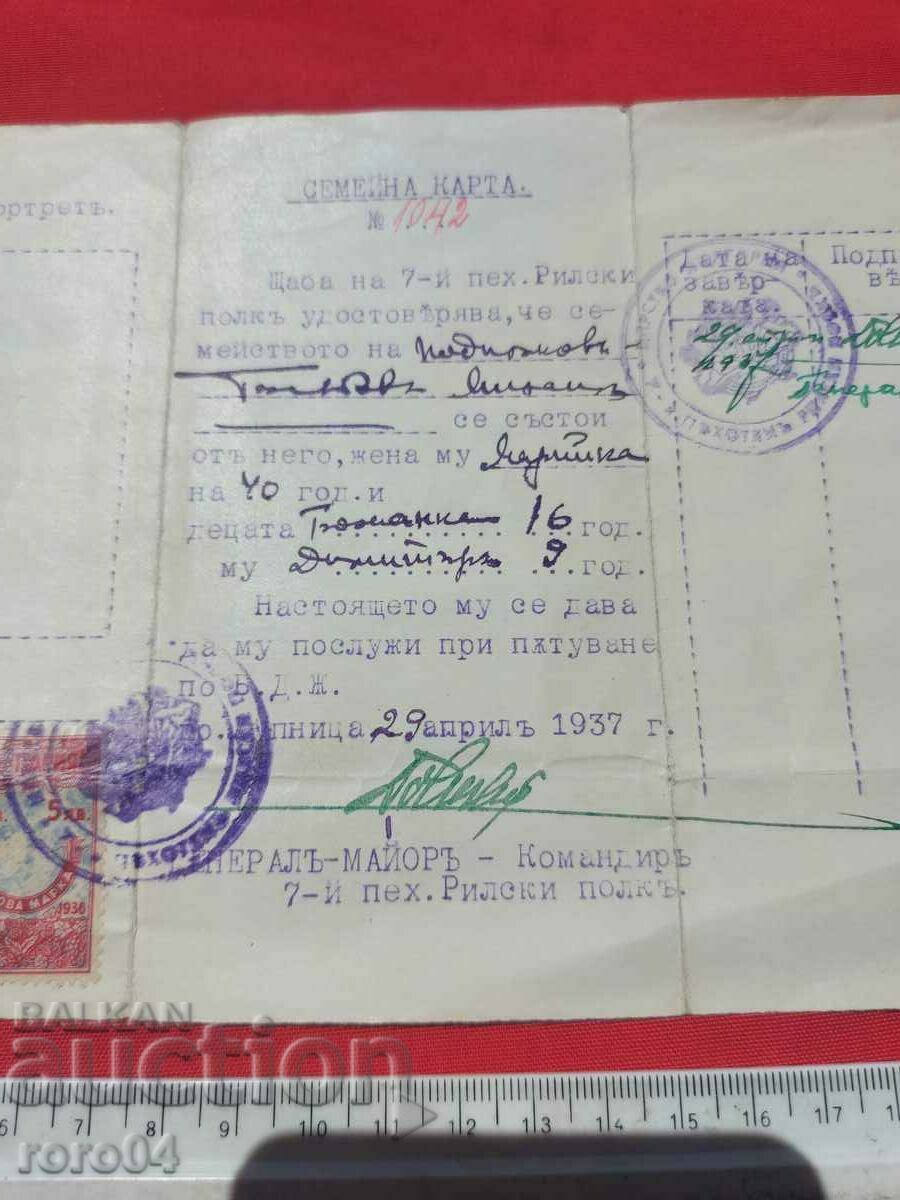 ортретъ.
СЕМЕЙНА КАРТА.
№ 1042
Щаба на 7-й пех.Рилски
полкъ удостовѣрява,че се-
мейството на
се състои
отъ него,жена му Марийка
на 40 год.и
децата 16 год.
му Димитъръ 9 год.
Настоящето му се дава
да му послужи при пѫтуване
по Б.Д.Ж.
упница 29 априлъ 1937 г.
НЕРАЛЪ-МАЙОРЪ - Командиръ
7-й пех.Рилски полкъ.
Дата на
завѣр-
ката.
Подп
вѣ
29 април
1937
Генера
5 лв.
ОВА МАРКА
1936
BALKAN
auction
roro04
6 7 8 9 10 11 12 13 14 15 16 17 18